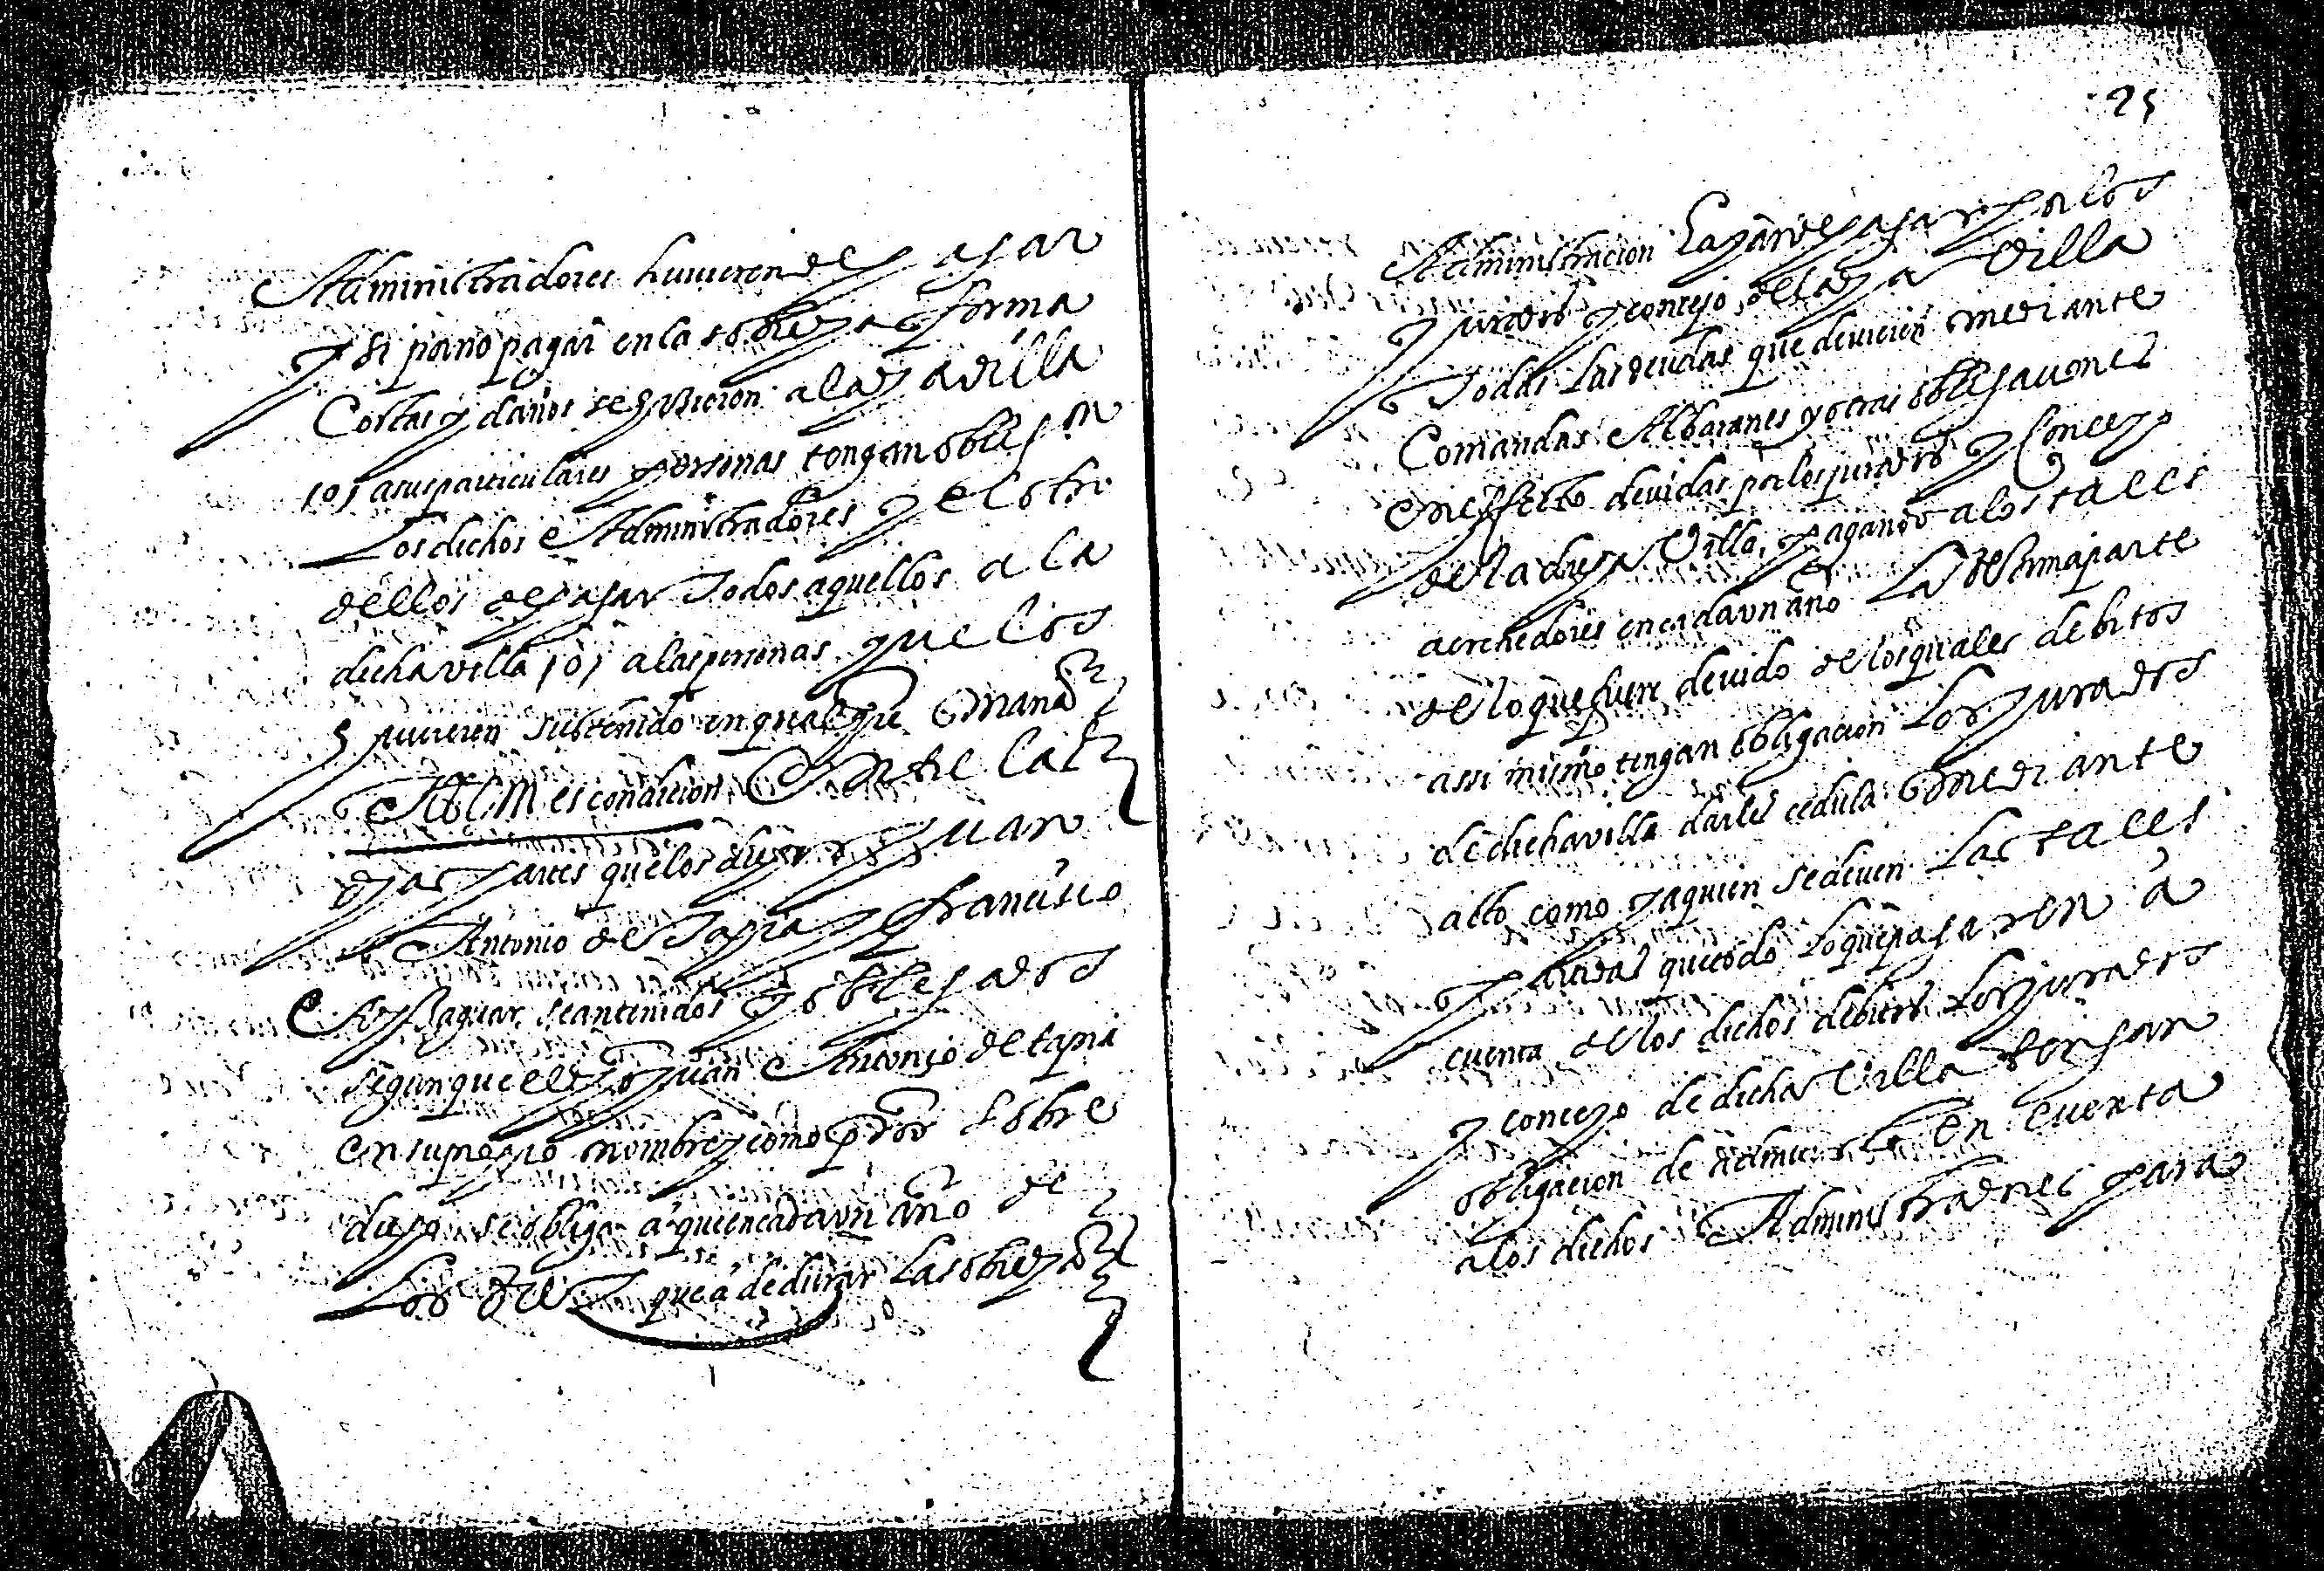 Administradores huvieren de pagar
y si por no pagar en la sobred̃a forma
Costas y daños se hizieron a la d̃a villa
/o/ a sus particulares personas tengan oblig.on
Los dichos Administradores y el otro
dellos de pagar Todos aquellos a la
dicha villa /o/ a las personas que los
huvieren sustenido en qualq̃re manã
Item es condicion entre las
d̃as partes que los dichos Juan
Antonio de Tapia y francisco
seantenidos y obligados
segun que el d̃o Juan Antonio de tapia
en su propio nombre y como pror sobre
dicho se obliga a que en cada un año de
Los diez que a de durar la sobred̃a
25
Administracion haran de pagar por los
Jurados y concejo de la d̃a villa
Todas las deudas que devieren mediante
Comandas Albaranes y otras obligaciones
en effecto devidas por los jurados y Concejo
de la dicha Villa, pagando a los tales
acrehedores en cada un año La deçima parte
de lo que fuere devido de los quales debitos
assi mismo tengan obligacion Los Jurados
de dicha villa darles cedula mediante
acto como y a quien se deven las tales
partidas que todo lo que pagaren a
cuenta de los dichos debitos los jurados
y concejo de dicha Villa tengan
obligacion de admitirlo en cuenta
a los dichos Administradores para